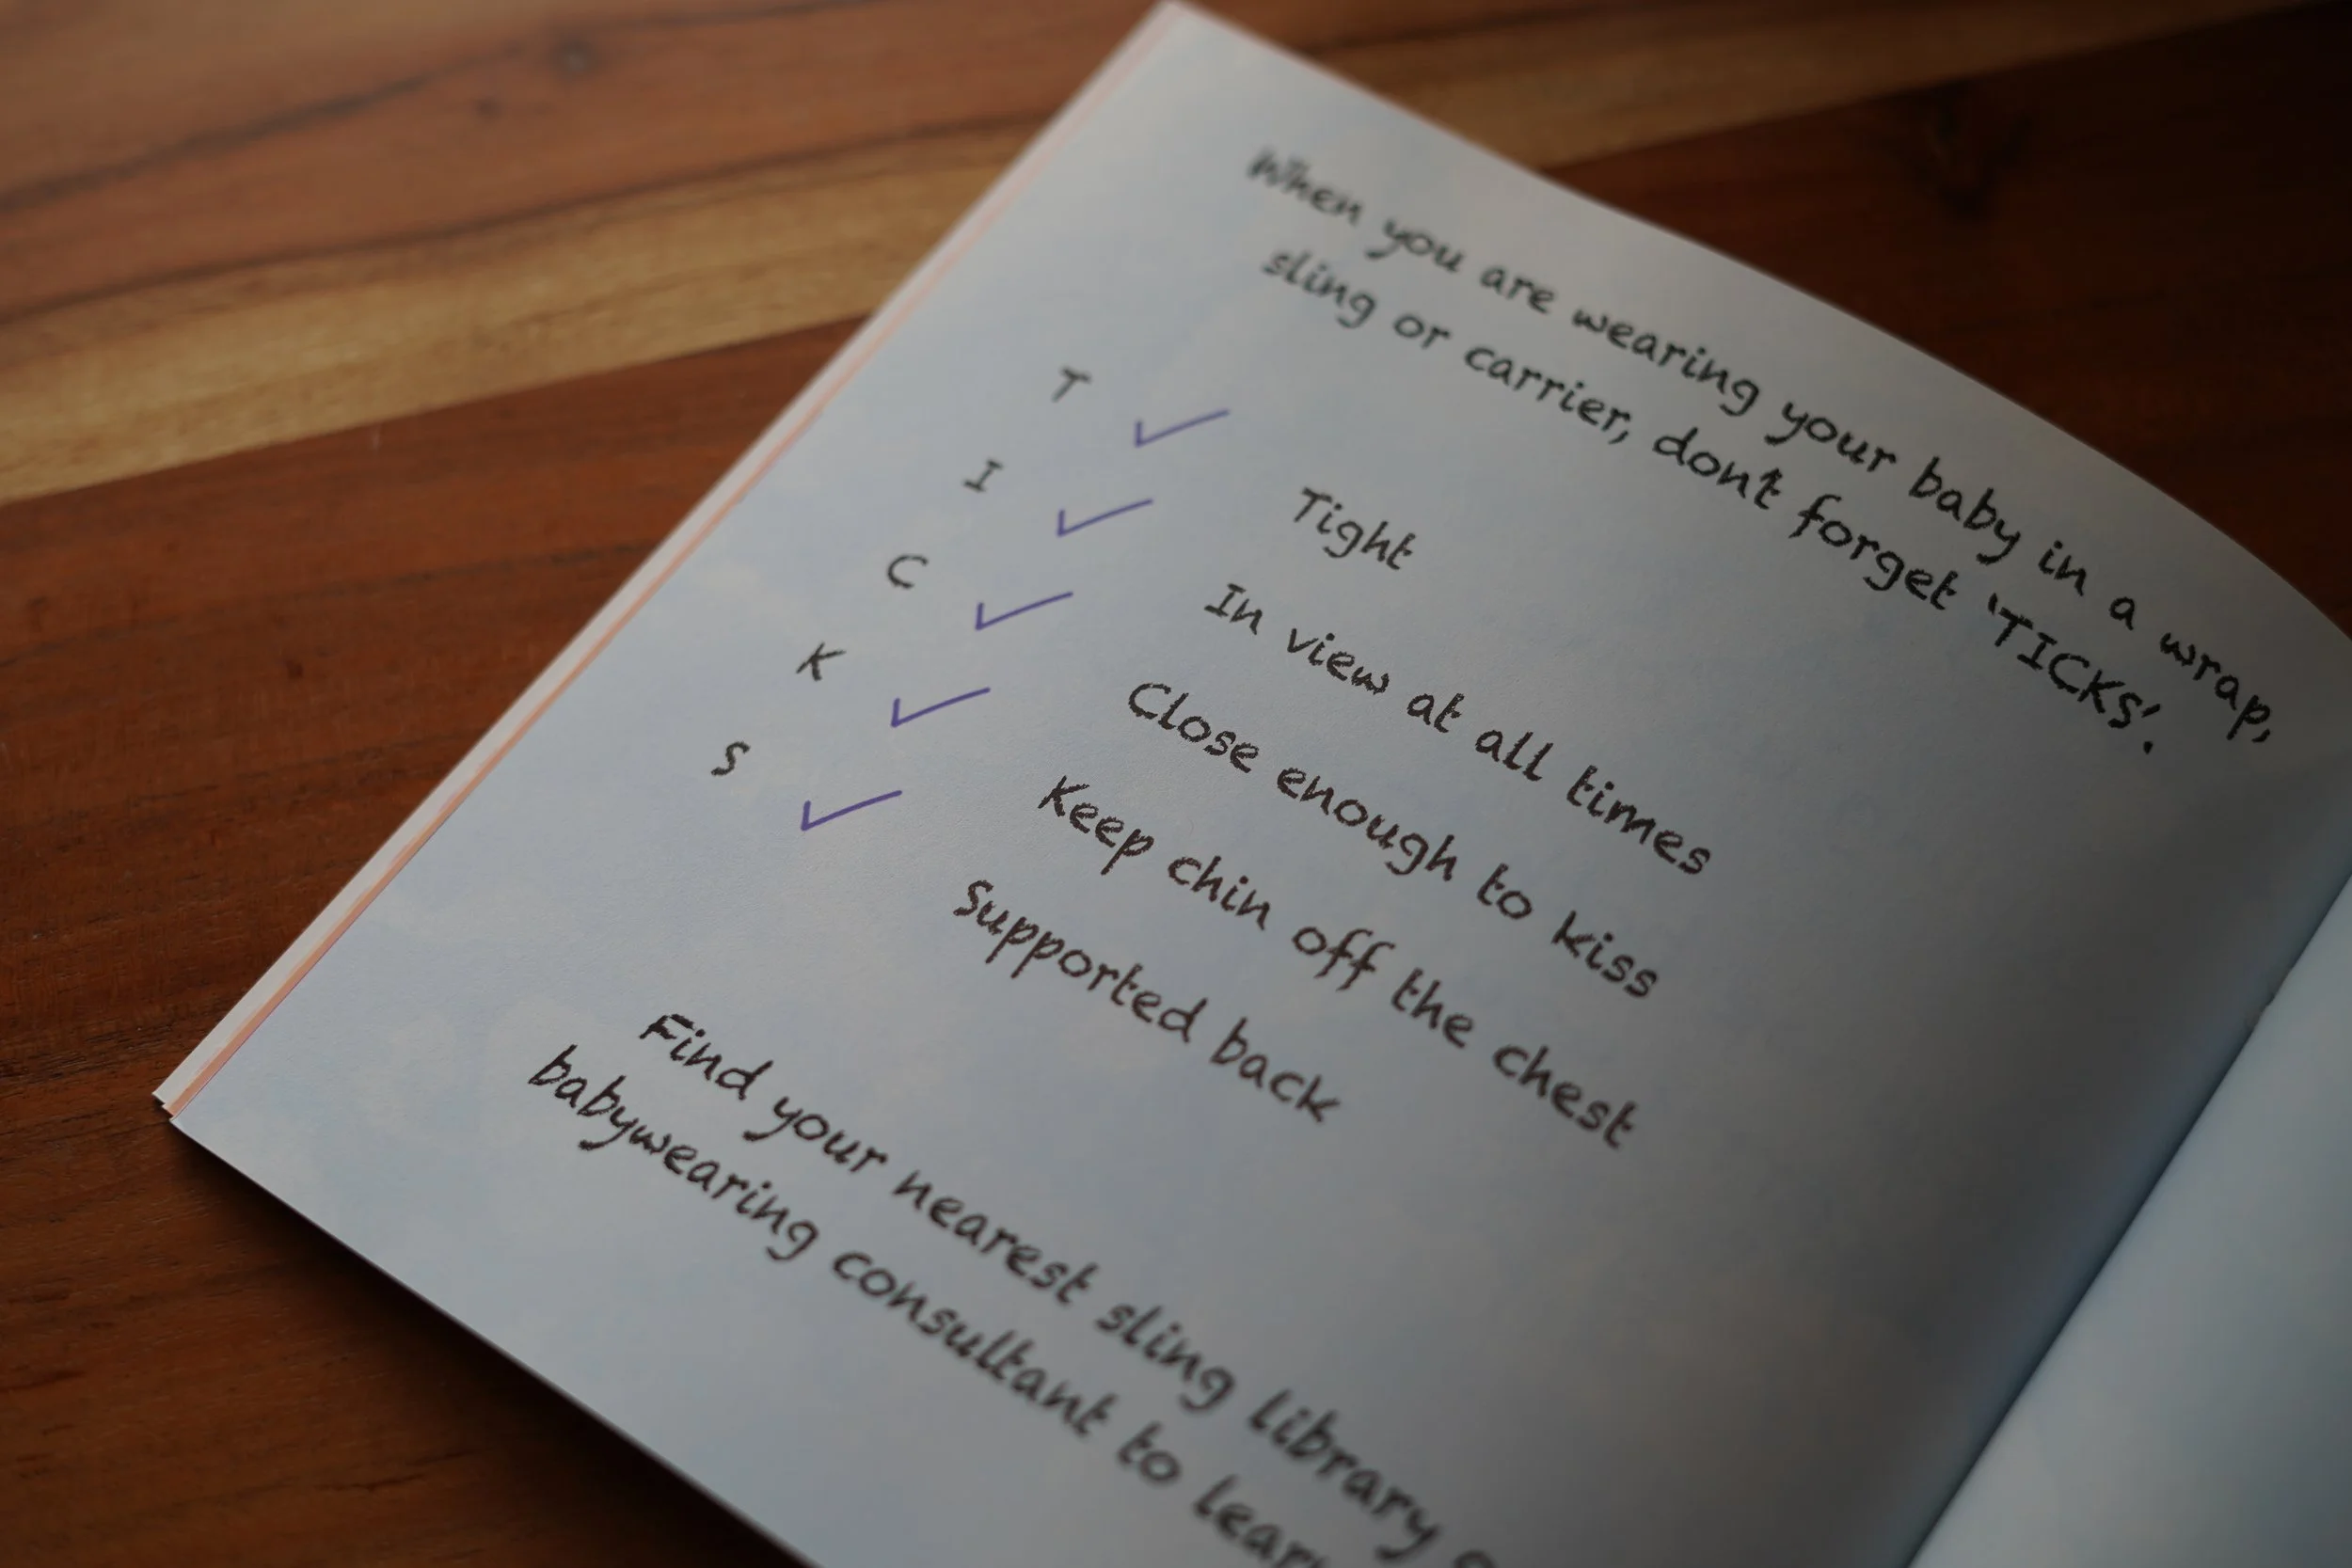 When you are wearing your baby in a wrap,
sling or carrier, don't forget 'TICKS'.
T ✓ Tight
I ✓ In view at all times
C ✓ Close enough to kiss
K ✓ Keep chin off the chest
S ✓ Supported back
Find your nearest sling library
babywearing consultant to